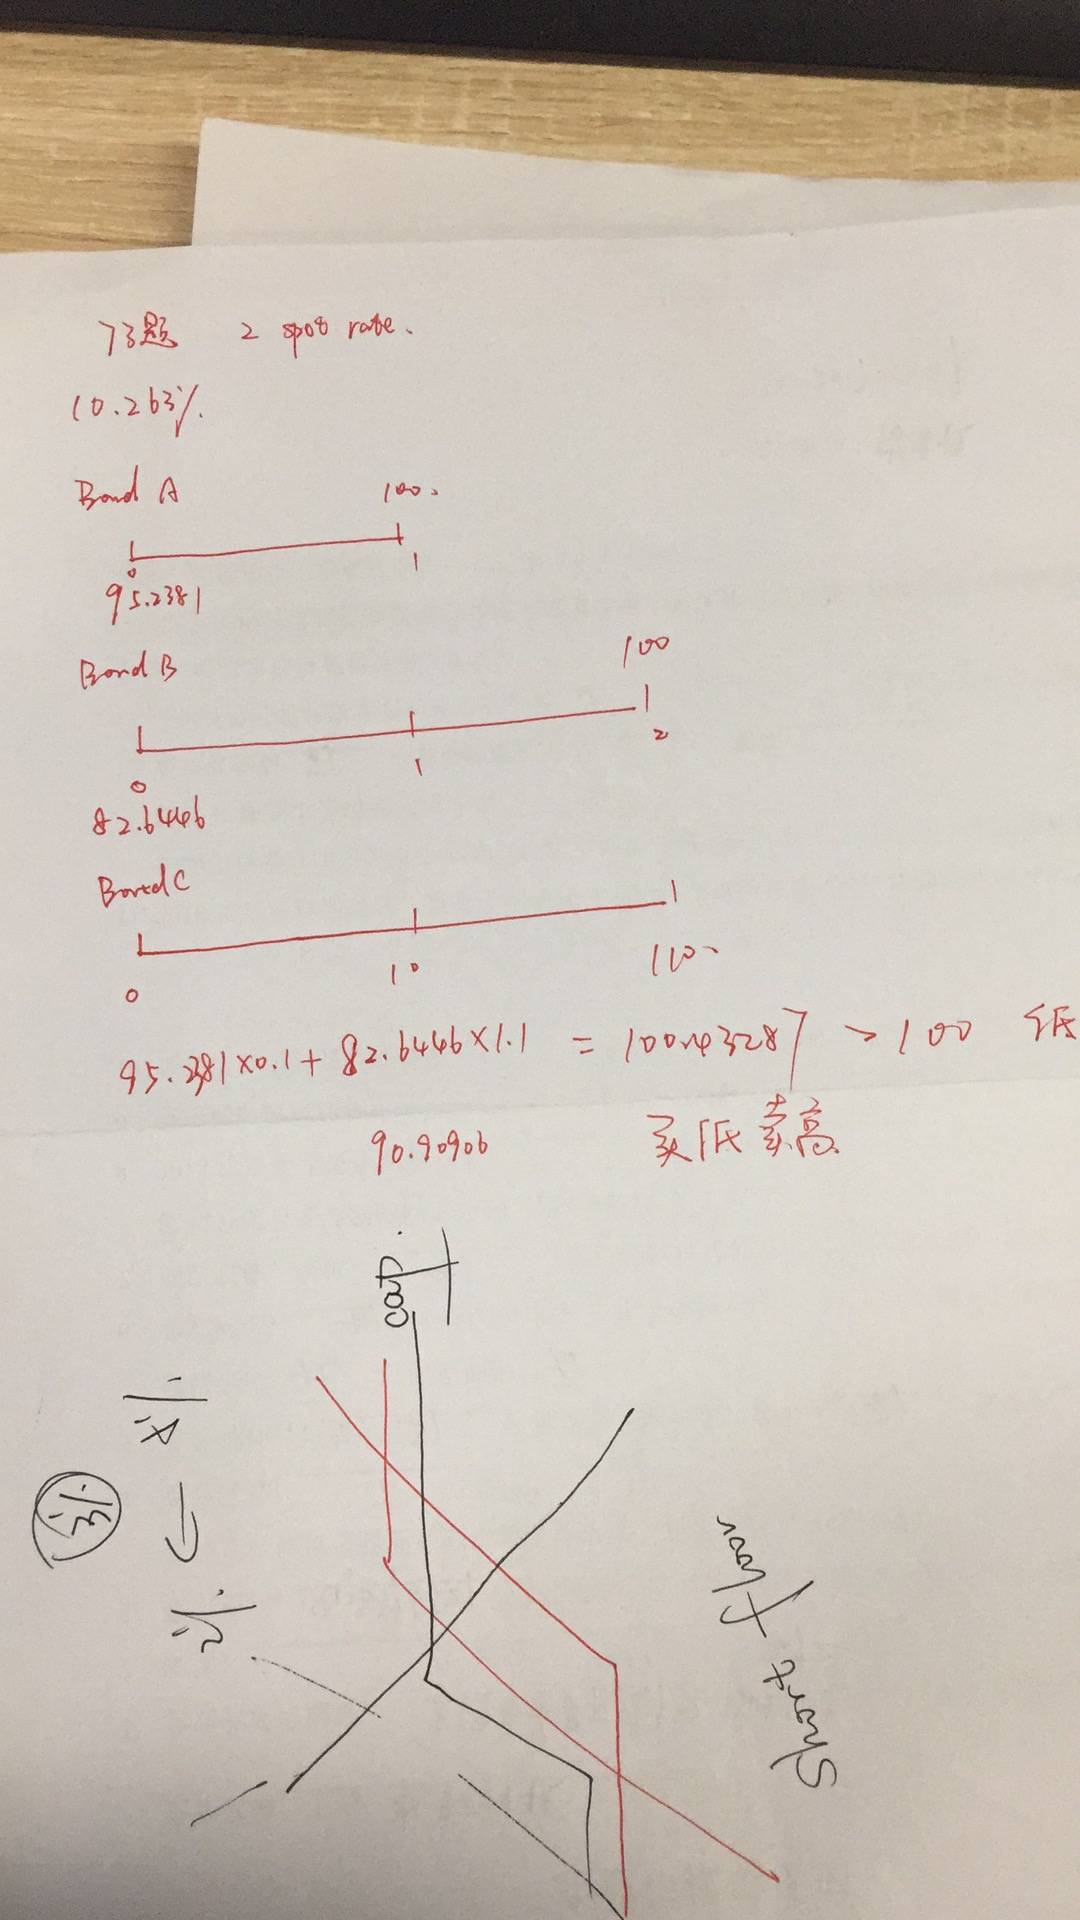 73题 2 spot rate.
10.263%.
Bond A 100.
0 1
95.2381
Bond B 100
0 1 2
82.6446
Bond C
0 10 110.
95.2381×0.1+82.6446×1.1 = 100.43287 > 100 低
90.90906 买低卖高
cap.
4%.
3%.
2%.
Short floor